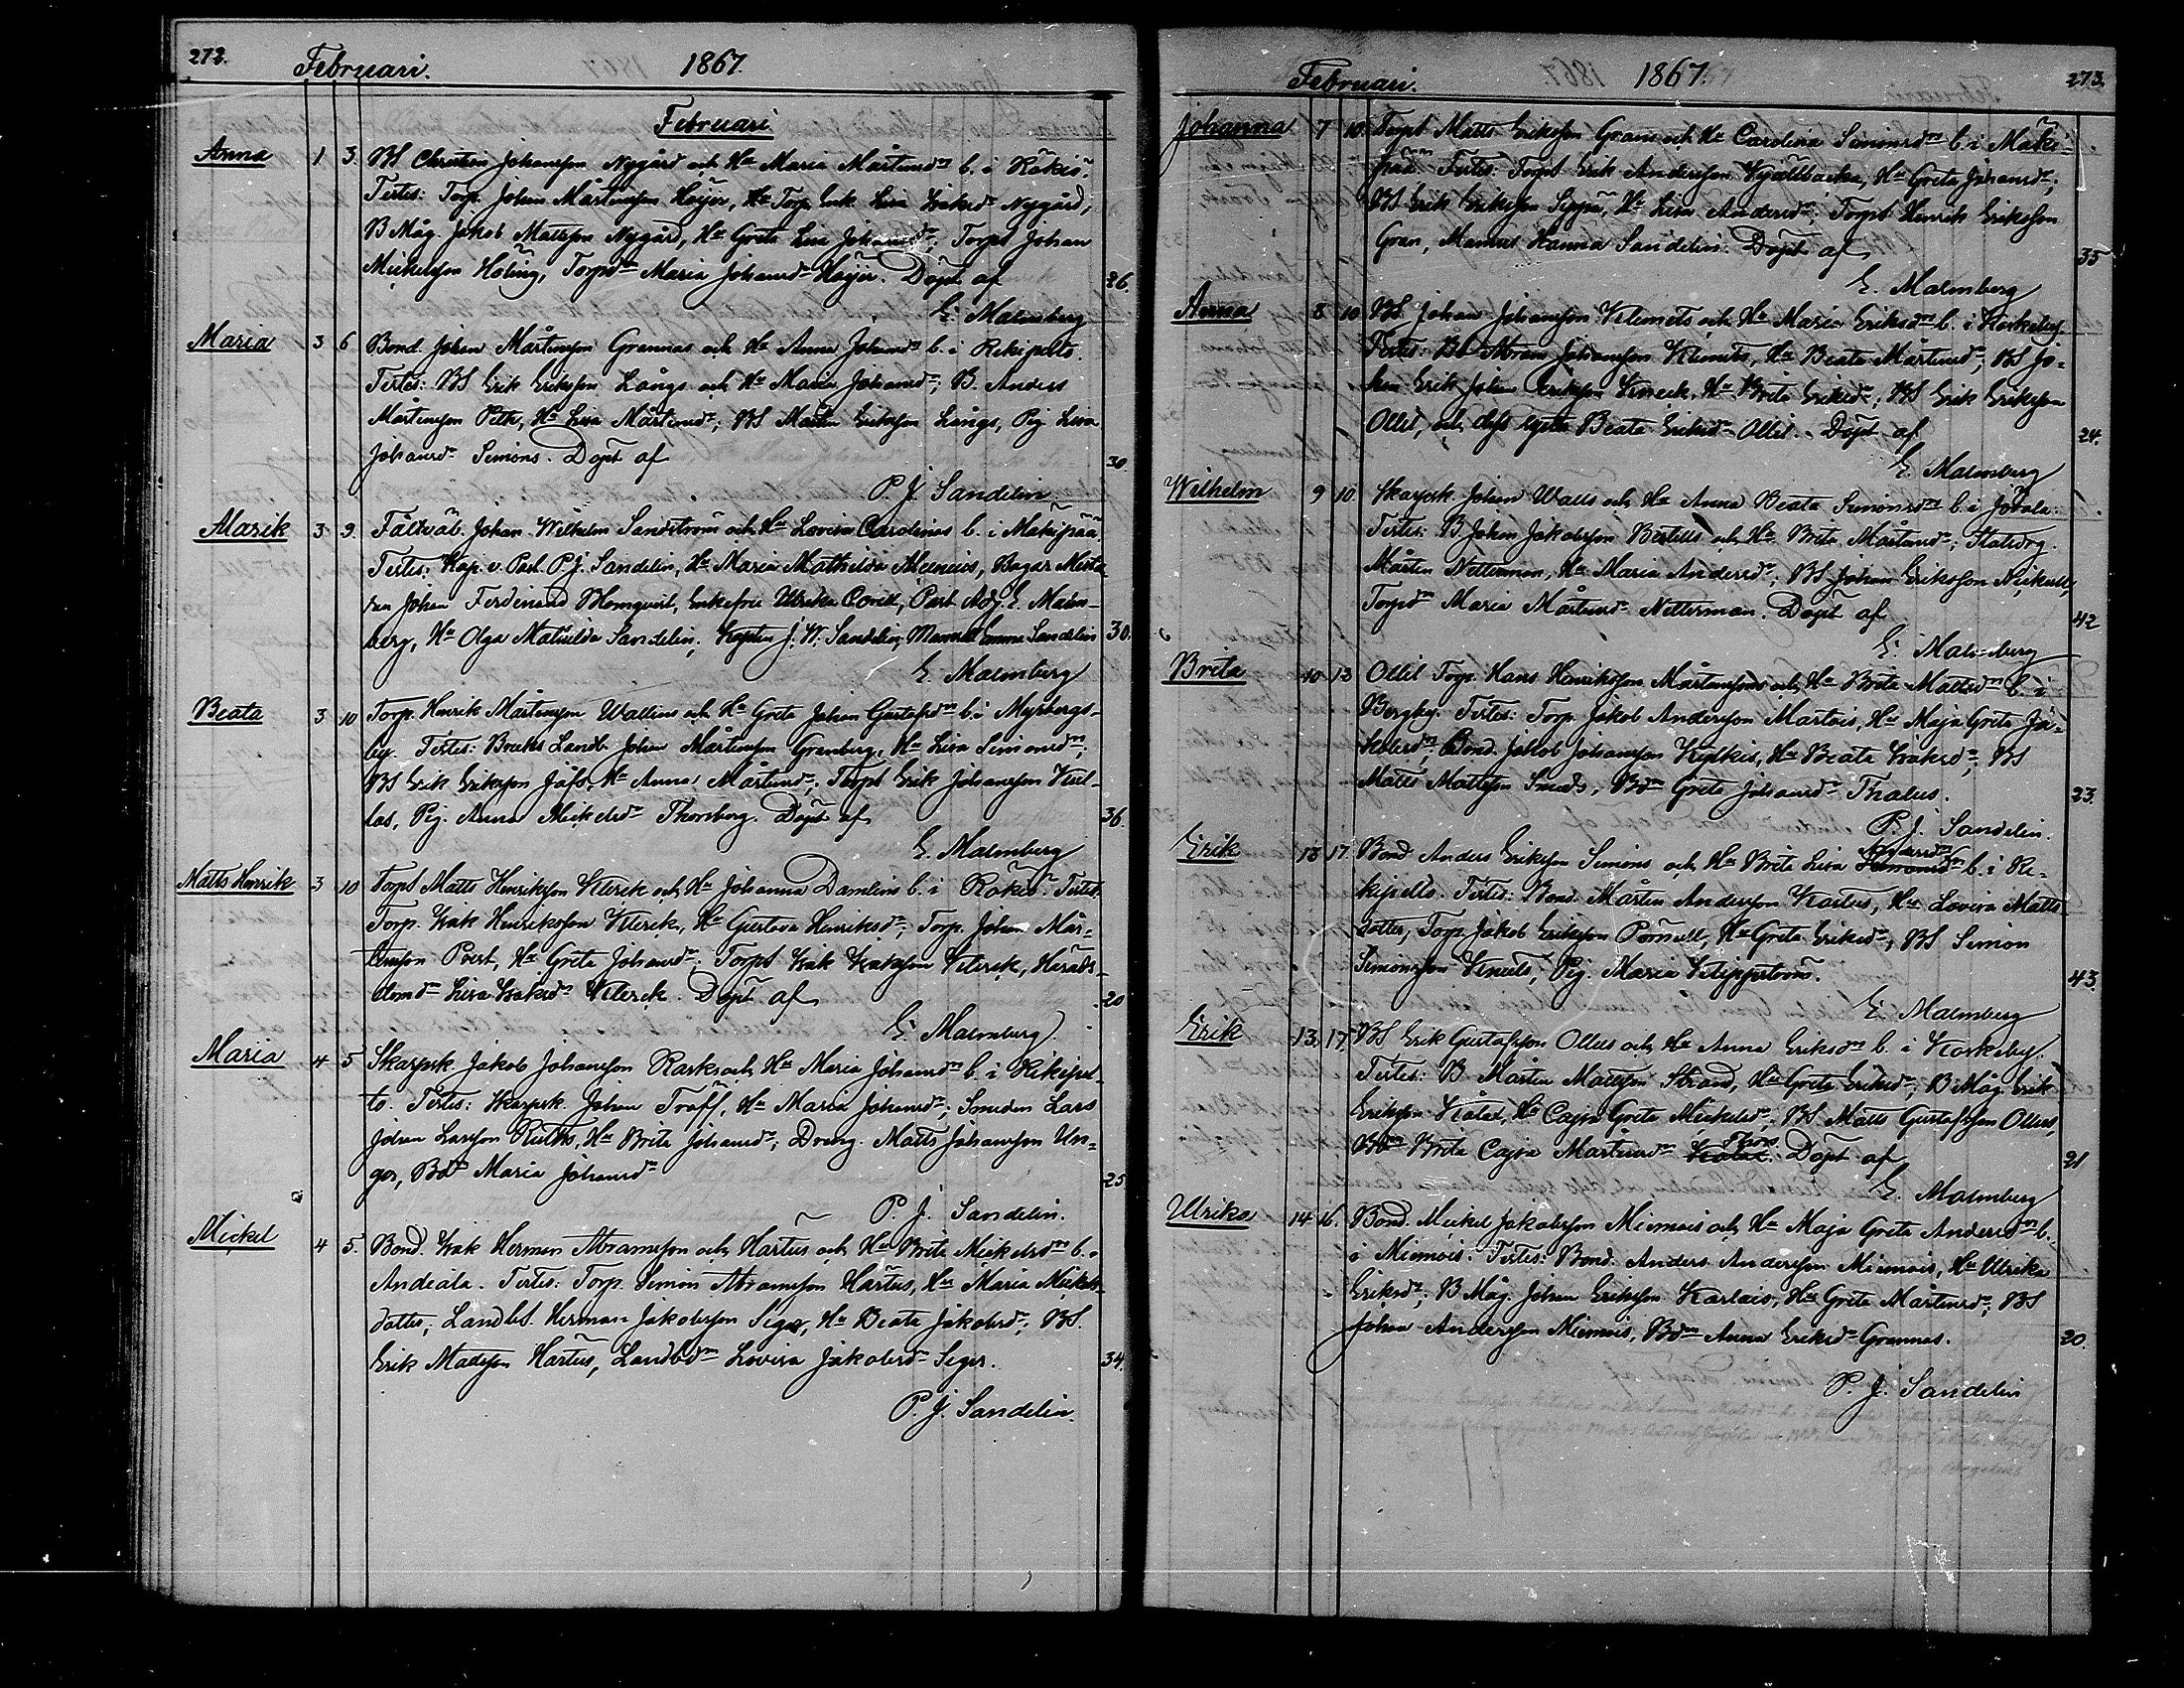 272.
Februari. 1867.
Februari
Anna 1 3. BS Christian Johansson Nygård och Hu Maria Mårtensdr b. i Räkiö.
Testes: Torp. Johan Mårtensson Höijer, Hu Torp. Enk. Lisa Isaksdr Nygård;
B Måg. Jakob Mattsson Nygård, Hu Greta Lisa Johansdr; Torps Johan
Mickelsson Höling, Torpsdr Maria Johansdr Höijer. Döpt af 26.
E. Malmberg
Maria 3 6 Bond. Johan Mårtensson Grannas och Hu Anna Johansdr b. i Rekipelto.
Testes: BS Erik Eriksson Långs och Hu Maria Johansdr; B. Anders
Mårtensson Pelk, Hu Lisa Mårtensdr; BS Mårten Eriksson Långs, Pig. Lisa
Johansdr Simons. Döpt af 30.
P. J. Sandelin.
Marik 3 9. Fältväb. Johan Wilhelm Sandström och Hu Lovisa Carolina b. i Mäkipää
Testes: Kap. v. Past. P. J. Sandelin, Hu Maria Mathilda Aleneius, Bagar Mästa-
ren Johan Ferdinand Blomqvist, Enkefru Ulrika Covell, Past. Adj. E. Malm-
berg, Hu Olga Mathilda Sandelin; Kapten J. W. Sandelin, Mamsell Emma Sandelin 30.
E. Malmberg
Beata 3 10 Torp. Henrik Mårtensson Wallius och Hu Greta Johan Gustafsdr b. i Myrbergs-
by. Testes: Bruks Landb. Johan Mårtensson Granberg, Hu Lisa Simonsdr;
BS Erik Eriksson Jåfs, Hu Anna Mårtensdr; Torps Erik Johansson Knel-
las, Pig. Anna Mickelsdr Thorsberg. Döpt af 36.
E. Malmberg
Matts Henrik 3 10 Torps Matts Henriksson Klerck och Hu Johanna Damlins b. i Räkiö. Testes:
Torp. Isak Henriksson Klerck, Hu Gustava Henriksdr; Torp. Johan Mår-
tensson Pvert, Hu Greta Johansdr; Torps Isak Isaksson Klerck, Härads-
dmdr Lisa Isaksdr Klerck. Döpt af 20
E. Malmberg
Maria 4 5 Skarpsk. Jakob Johansson Rask och Hu Maria Johansdr b. i Rekipel-
to. Testes: Skarpsk. Johan Träff, Hu Maria Johansdr; Smeden Lars
Johan Larsson Ruths, Hu Brita Johansdr; Dreng. Matts Johansson Un-
ger, Bdr Maria Johansdr 25
P. J. Sandelin.
Mickel 4 5. Bond. Isak Herman Abramsson och Hartus och Hu Brita Mickelsdr b.
Andiala. Testes: Torp. Simon Abramsson Hartus, Hu Maria Mickels-
dotter; LandbS. Herman Jakobsson Seger, Hu Beata Jakobsdr; BS.
Erik Madsson Hartus, Landbdr Lovisa Jakobsdr Seger. 34.
P. J. Sandelin.
273.
Februari. 1867.
Johanna 7 10. Torps Matts Eriksson Gran och Hu Carolina Simonsdr b. i Mäki-
pää Testes: Torps Erik Andersson Kjällbacka, Hu Greta Johansdr;
BS Erik Eriksson Seppä, Hu Lisa Andersdr; Torps Henrik Eriksson
Gran, Mamsel Hanna Sandelin. Döpt af 35
E. Malmberg
Anna 8 10 BS Johan Johansson Klemets och Hu Maria Eriksdr b. i Korkeby.
Testes: Bd Abram Johansson Klemets, Hu Beata Mårtensdr; BS Jo-
han Erik Johan Eriksson Kneck, Hu Brita Eriksdr; BS Erik Eriksson
Ollil, och dess syster Beata Eriksdr Ollil. Döpt af 24.
E. Malmberg
Wilhelm 9 10. Skarpsk. Johan Walls och Hu Anna Beata Simonsdr b. i Jåfala.
Testes: B. Johan Jakobsson Bertills och Hu Brita Mårtensdr; Statsdrg.
Mårten Netterman, Hu Maria Andersdr; BS Johan Eriksson Nickull,
Torpsdr Maria Mårtensdr Netterman. Döpt af 42
E. Malmberg
Brita 10 13 Ollil Torp. Hans Henriksson Mårtensson och Hu Brita Mattsdr b. i
Bergby. Testes: Torp. Jakob Andersson Martois, Hu Maja Greta Ja-
kobsdr; Bond. Jakob Johansson Kylkis, Hu Beata Isaksdr; BS
Matts Mattsson Smeds, Bdr Greta Johansdr Thalus. 23.
P. J. Sandelin.
Erik 13 17. Bond Anders Eriksson Simons och Hu Brita Lisa Andersdr b. i Re-
kipelto. Testes: Bond. Mårten Andersson Kaitus, Hu Lovisa Matts-
dotter, Torp. Jakob Eriksson Pornull, Hu Greta Eriksdr; BS Simon
Simonsson Knuts, Pig. Maria Klippström. 43.
E. Malmberg
Erik 13. 17. BS Erik Gustafsson Ollus och Hu Anna Eriksdr b. i Korkeby.
Testes: B Mårten Mattsson Strand, Hu Greta Eriksdr; B Måg. Erik
Eriksson Kålax, Hu Cajsa Greta Mickelsdr; BS Matts Gustafsson Ollus,
Bdr Brita Cajsa Martensdr Flors Kålax. Döpt af 21
E. Malmberg
Ulrika 14 16. Bond. Mickel Jakobsson Miemois och Hu Maja Greta Andersdr b.
i Miemois. Testes: Bond. Anders Andersson Miemois, Hu Ulrika
Eriksdr; B Måg. Johan Eriksson Karlais, Hu Greta Mårtensdr; BS
Johan Andersson Miemois, Bdr Anna Eriksdr Grannas. 20.
P. J. Sandelin